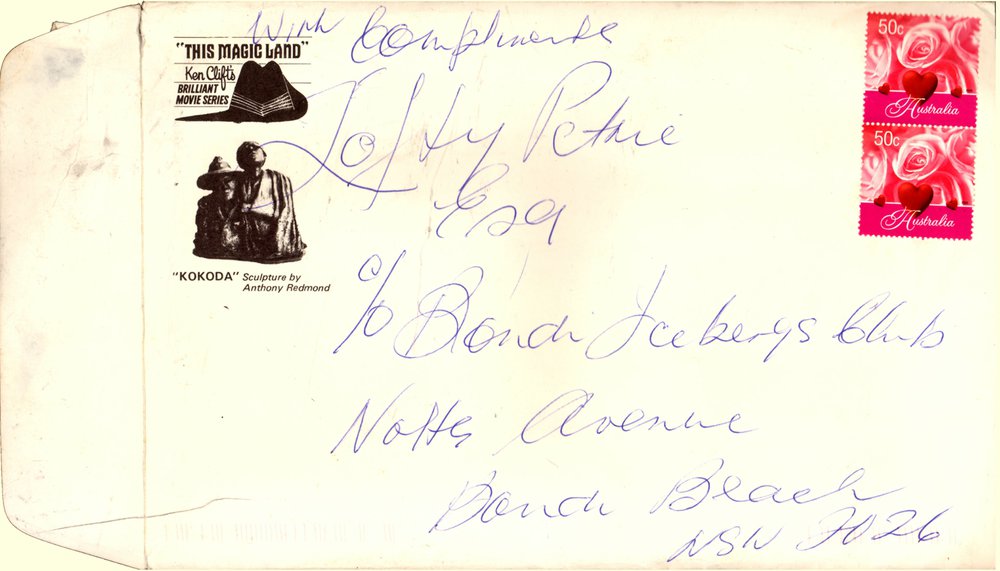 With Compliments
"THIS MAGIC LAND"
Ken Clift's
BRILLIANT
MOVIE SERIES
Lofty Petrie
Esq
"KOKODA" Sculpture by
Anthony Redmond
c/o Bondi Icebergs Club
Notts Avenue
Bondi Beach
NSW 2026
50c
Australia
50c
Australia